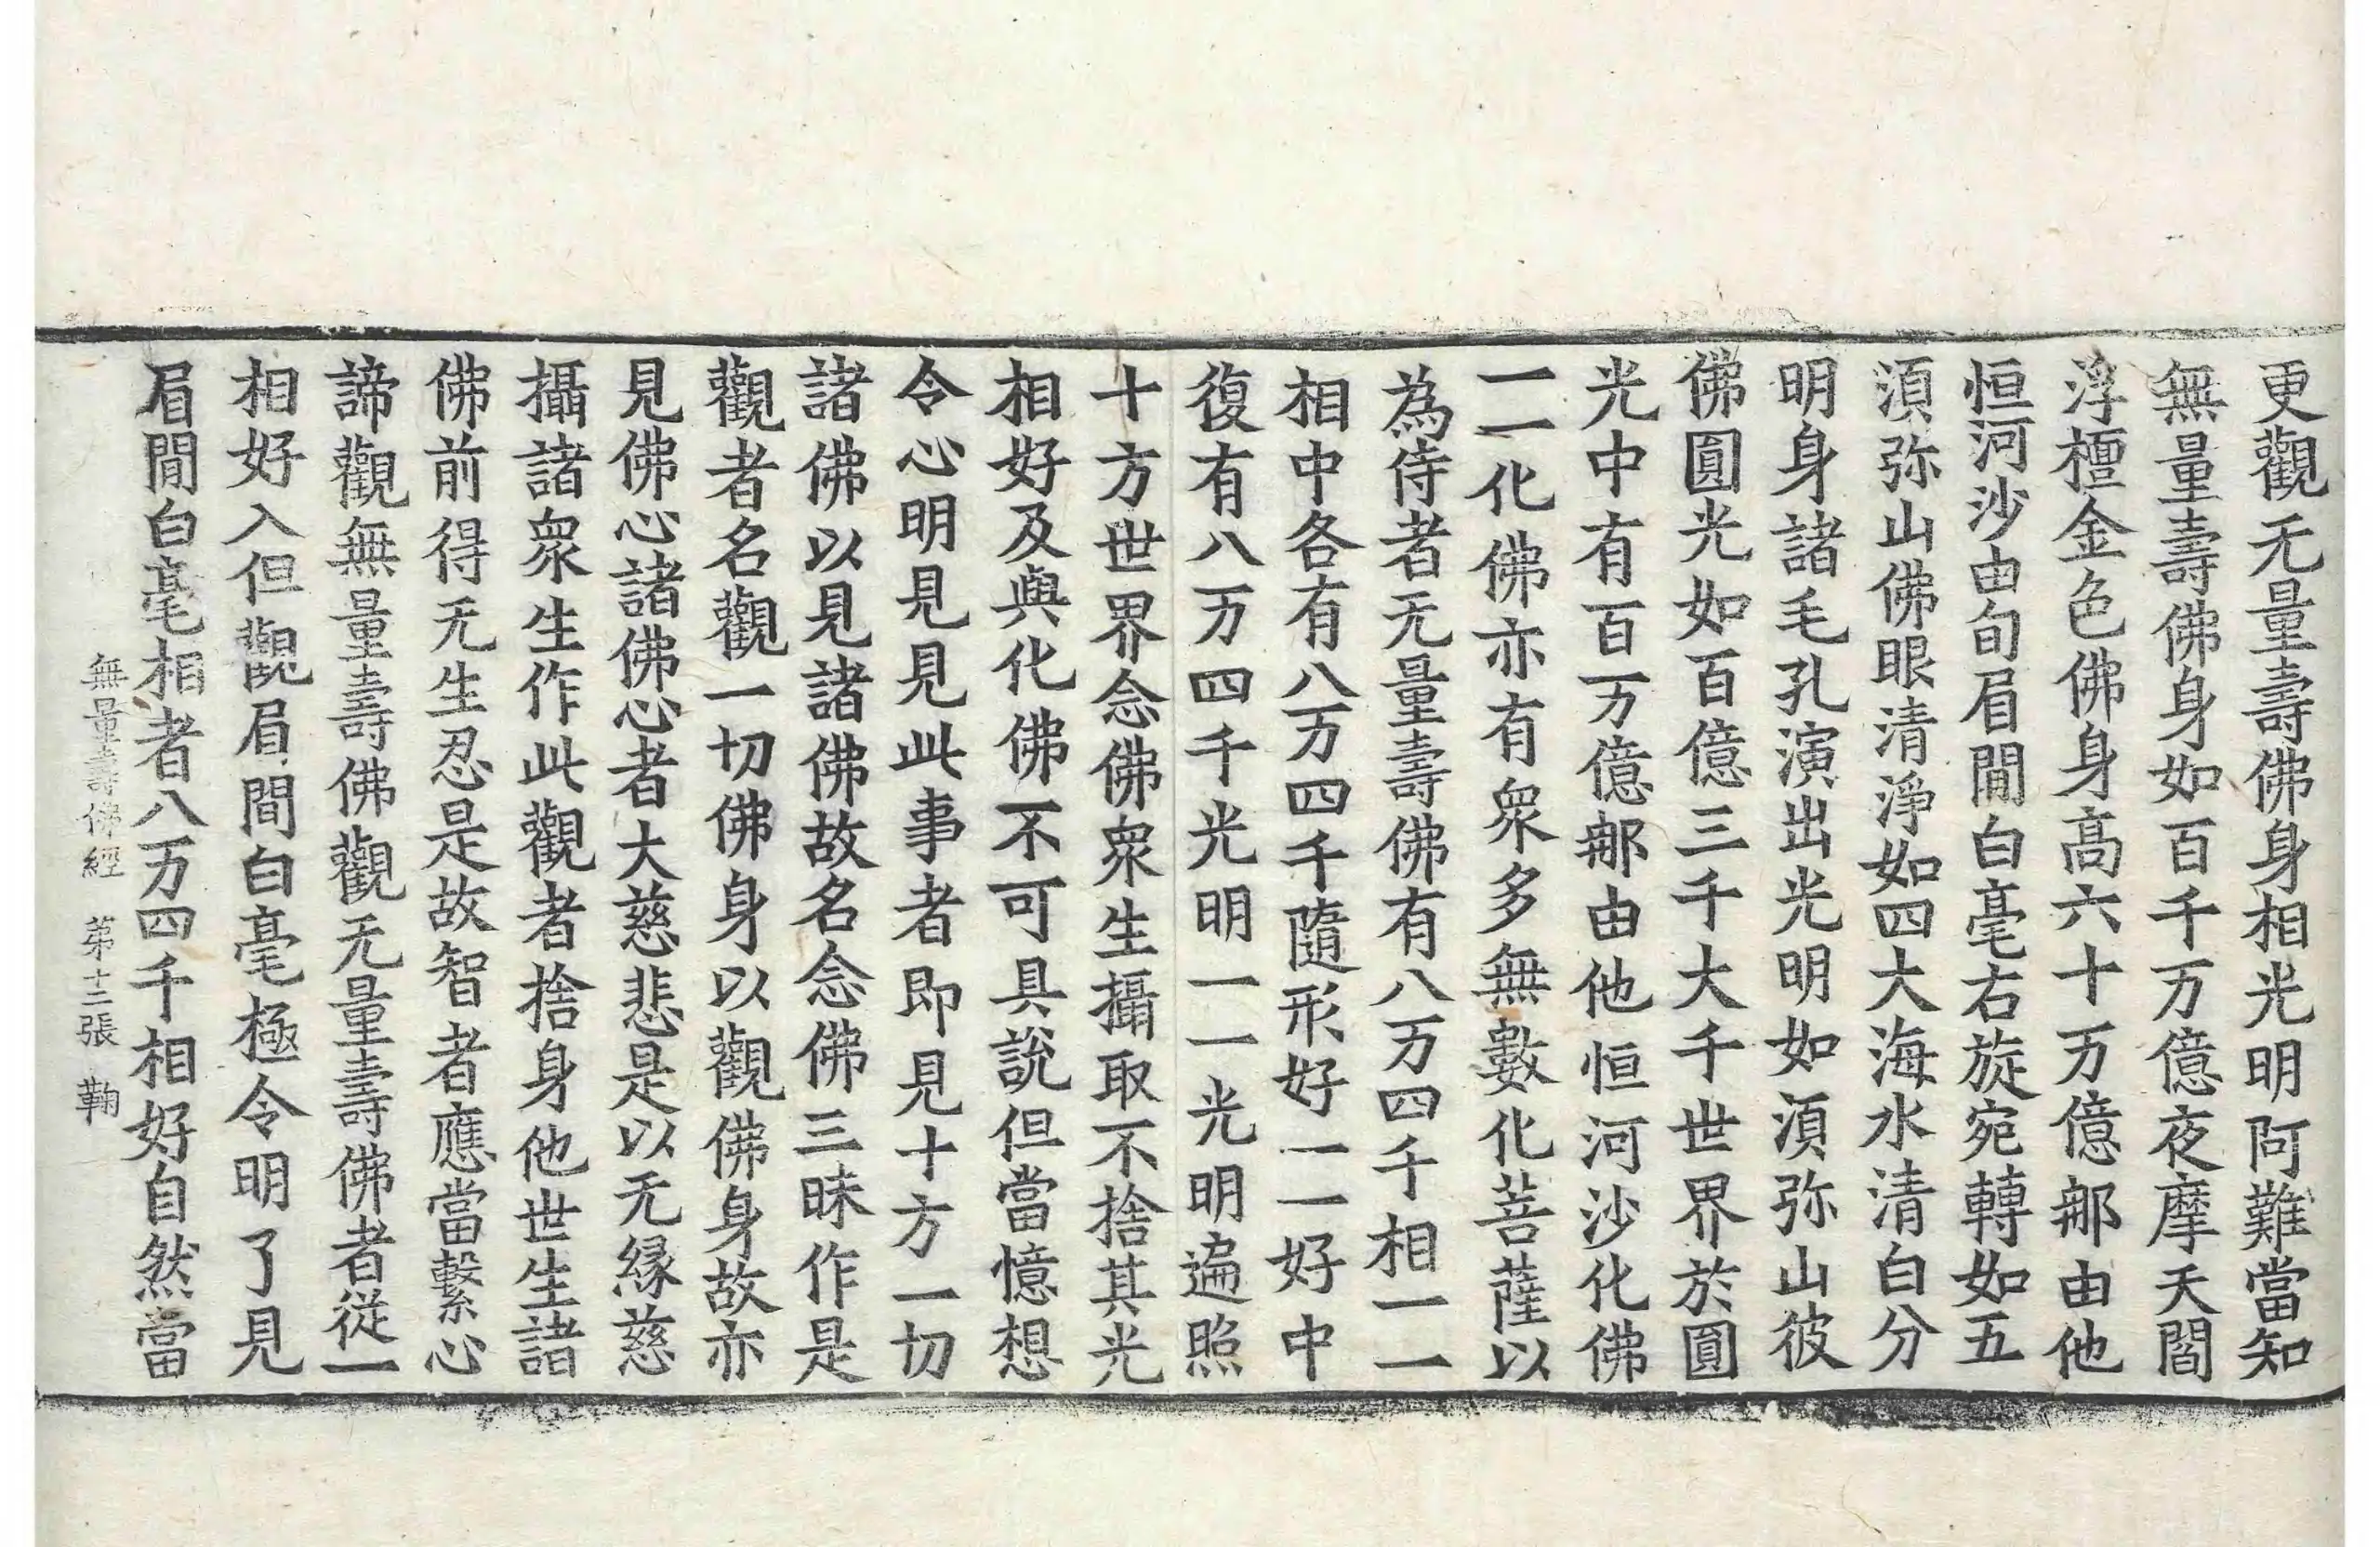 更觀无量壽佛身相光明阿難當知
無量壽佛身如百千万億夜摩天閻
浮檀金色佛身高六十万億郍由他
恒河沙由旬眉間白毫右旋宛轉如五
湏弥山佛眼清淨如四大海水清白分
明身諸毛孔演出光明如湏弥山彼
佛圓光如百億三千大千世界於圓
光中有百万億郍由他恒河沙化佛
一一化佛亦有衆多無數化菩薩以
為侍者无量壽佛有八万四千相一一
相中各有八万四千隨形好一一好中
復有八万四千光明一一光明遍照
十方世界念佛衆生攝取不捨其光
相好及與化佛不可具說但當憶想
令心明見見此事者即見十方一切
諸佛以見諸佛故名念佛三昧作是
觀者名觀一切佛身以觀佛身故亦
見佛心諸佛心者大慈悲是以无緣慈
攝諸衆生作此觀者捨身他世生諸
佛前得无生忍是故智者應當繫心
諦觀無量壽佛觀无量壽佛者從一
相好入但觀眉間白毫極令明了見
眉間白毫相者八万四千相好自然當
無量壽佛經 第十二張 鞠